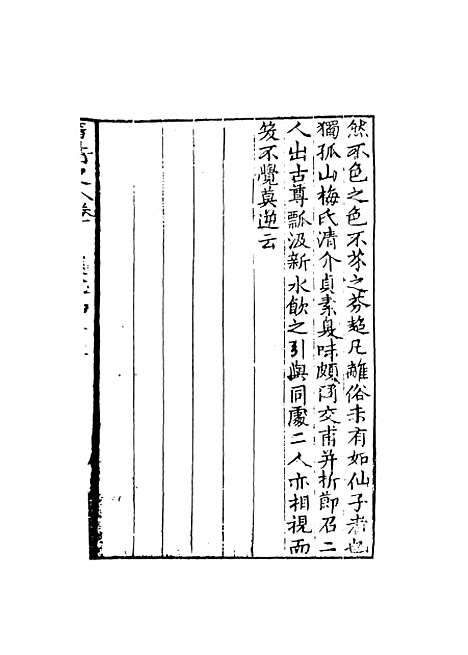 然不色之色不芬之芬超凡離俗未有如仙子者也
獨孤山梅氏清介貞素臭味頗同交甫并折節召二
人出古尊瓢汲新水飲之引與同處二人亦相視而
笑不覺莫逆云